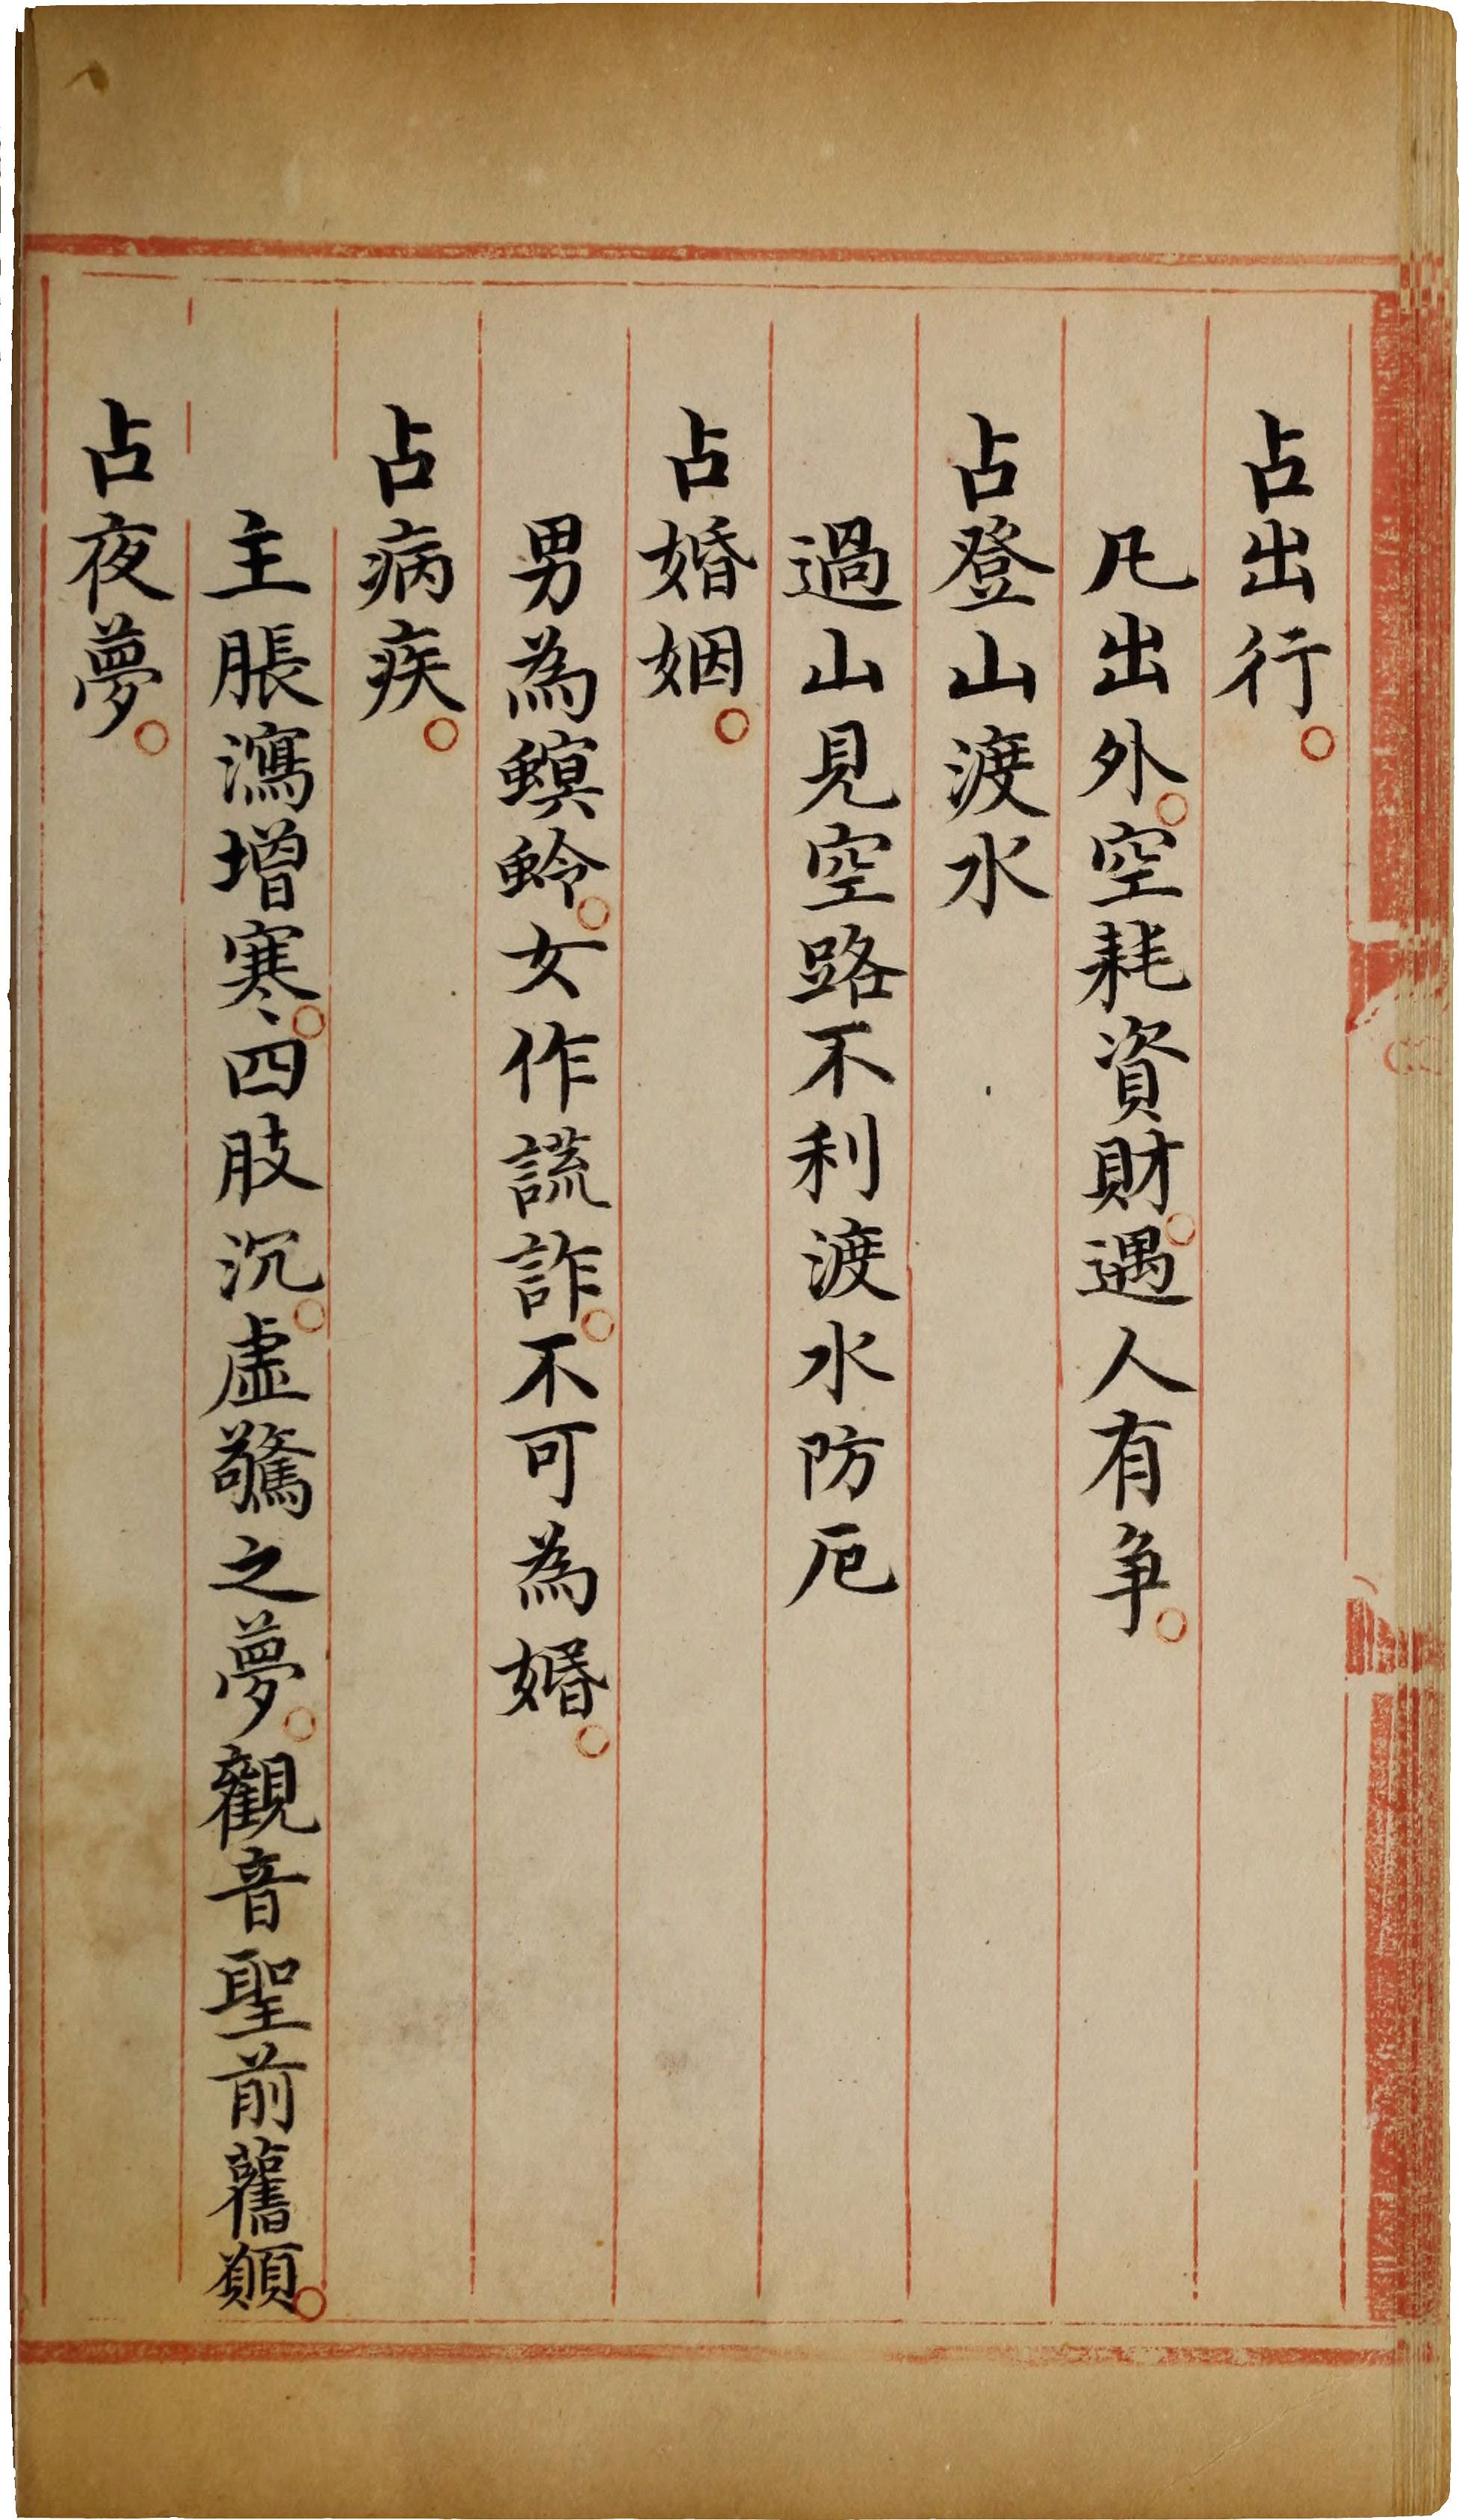 占出行。
凡出外。空耗資財。遇人有爭。
占登山渡水
過山見空路不利渡水防厄
占婚姻。
男為螟蛉。女作謊詐。不可為婚。
占病疾。
主脹瀉增寒。四肢沉。虛驚之夢。觀音聖前舊願。
占夜夢。